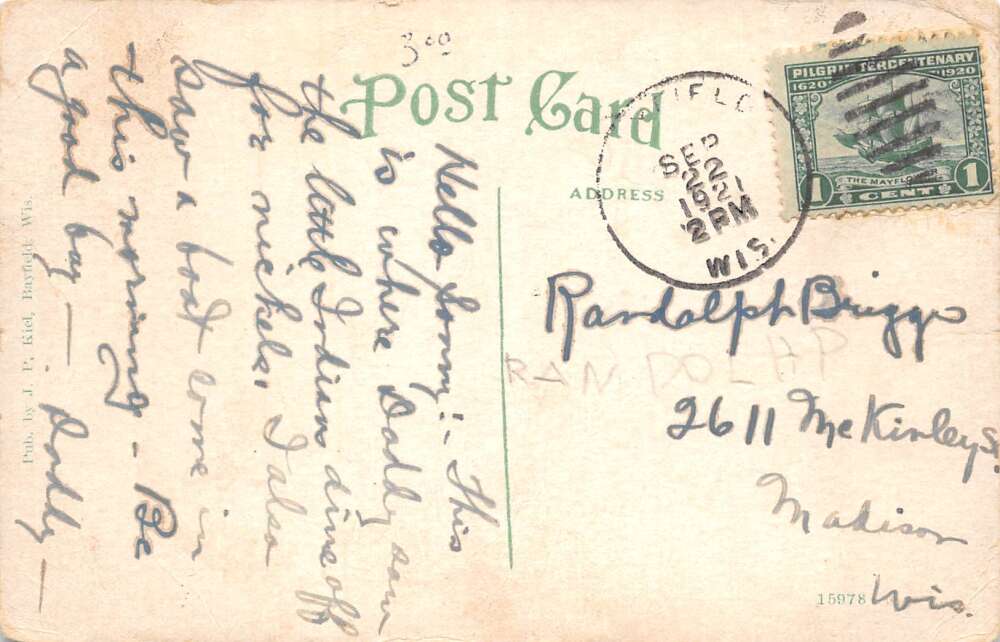 300
POST CARD
ADDRESS
PILGRIM TERCENTENARY
1620 1920
THE MAYFLOWER
1 CENT 1
SEP
22
1921
2 PM
WIS.
Hello Sonny:- This
is where Daddy saw
the little Indian dive off
for nickels. I also
saw a boat come in
this morning - Be
a good boy - Daddy -
Randolph Briggs
RANDOLHP
2611 McKinley St.
Madison
Wis.
15978
Pub. by J. P. Kiel, Bayfield, Wis.